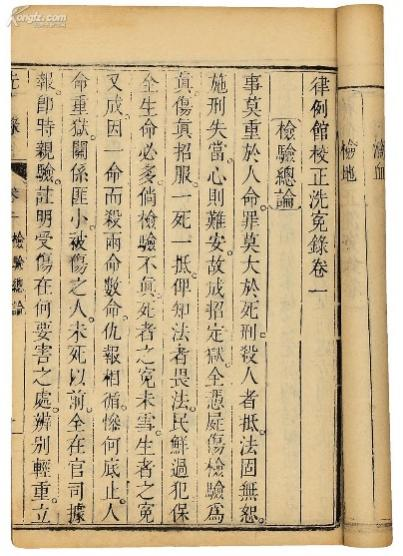 滴血
檢地
律例館校正洗冤錄卷一
檢驗總論
事莫重於人命。罪莫大於死刑。殺人者抵法固無恕。
施刑失當。心則難安。故成招定獄。全憑屍傷檢驗爲
眞。傷眞招服。一死一抵。俾知法者畏法。民鮮過犯。保
全生命必多。倘檢驗不眞。死者之冤未雪。生者之冤
又成。因一命而殺兩命數命。仇報相循。慘何底止。人
命重獄。關係匪小。被傷之人。未死以前。全在官司據
報。卽時親驗。註明受傷在何要害之處。辨別輕重。立
檢驗總論
Kongfz.com